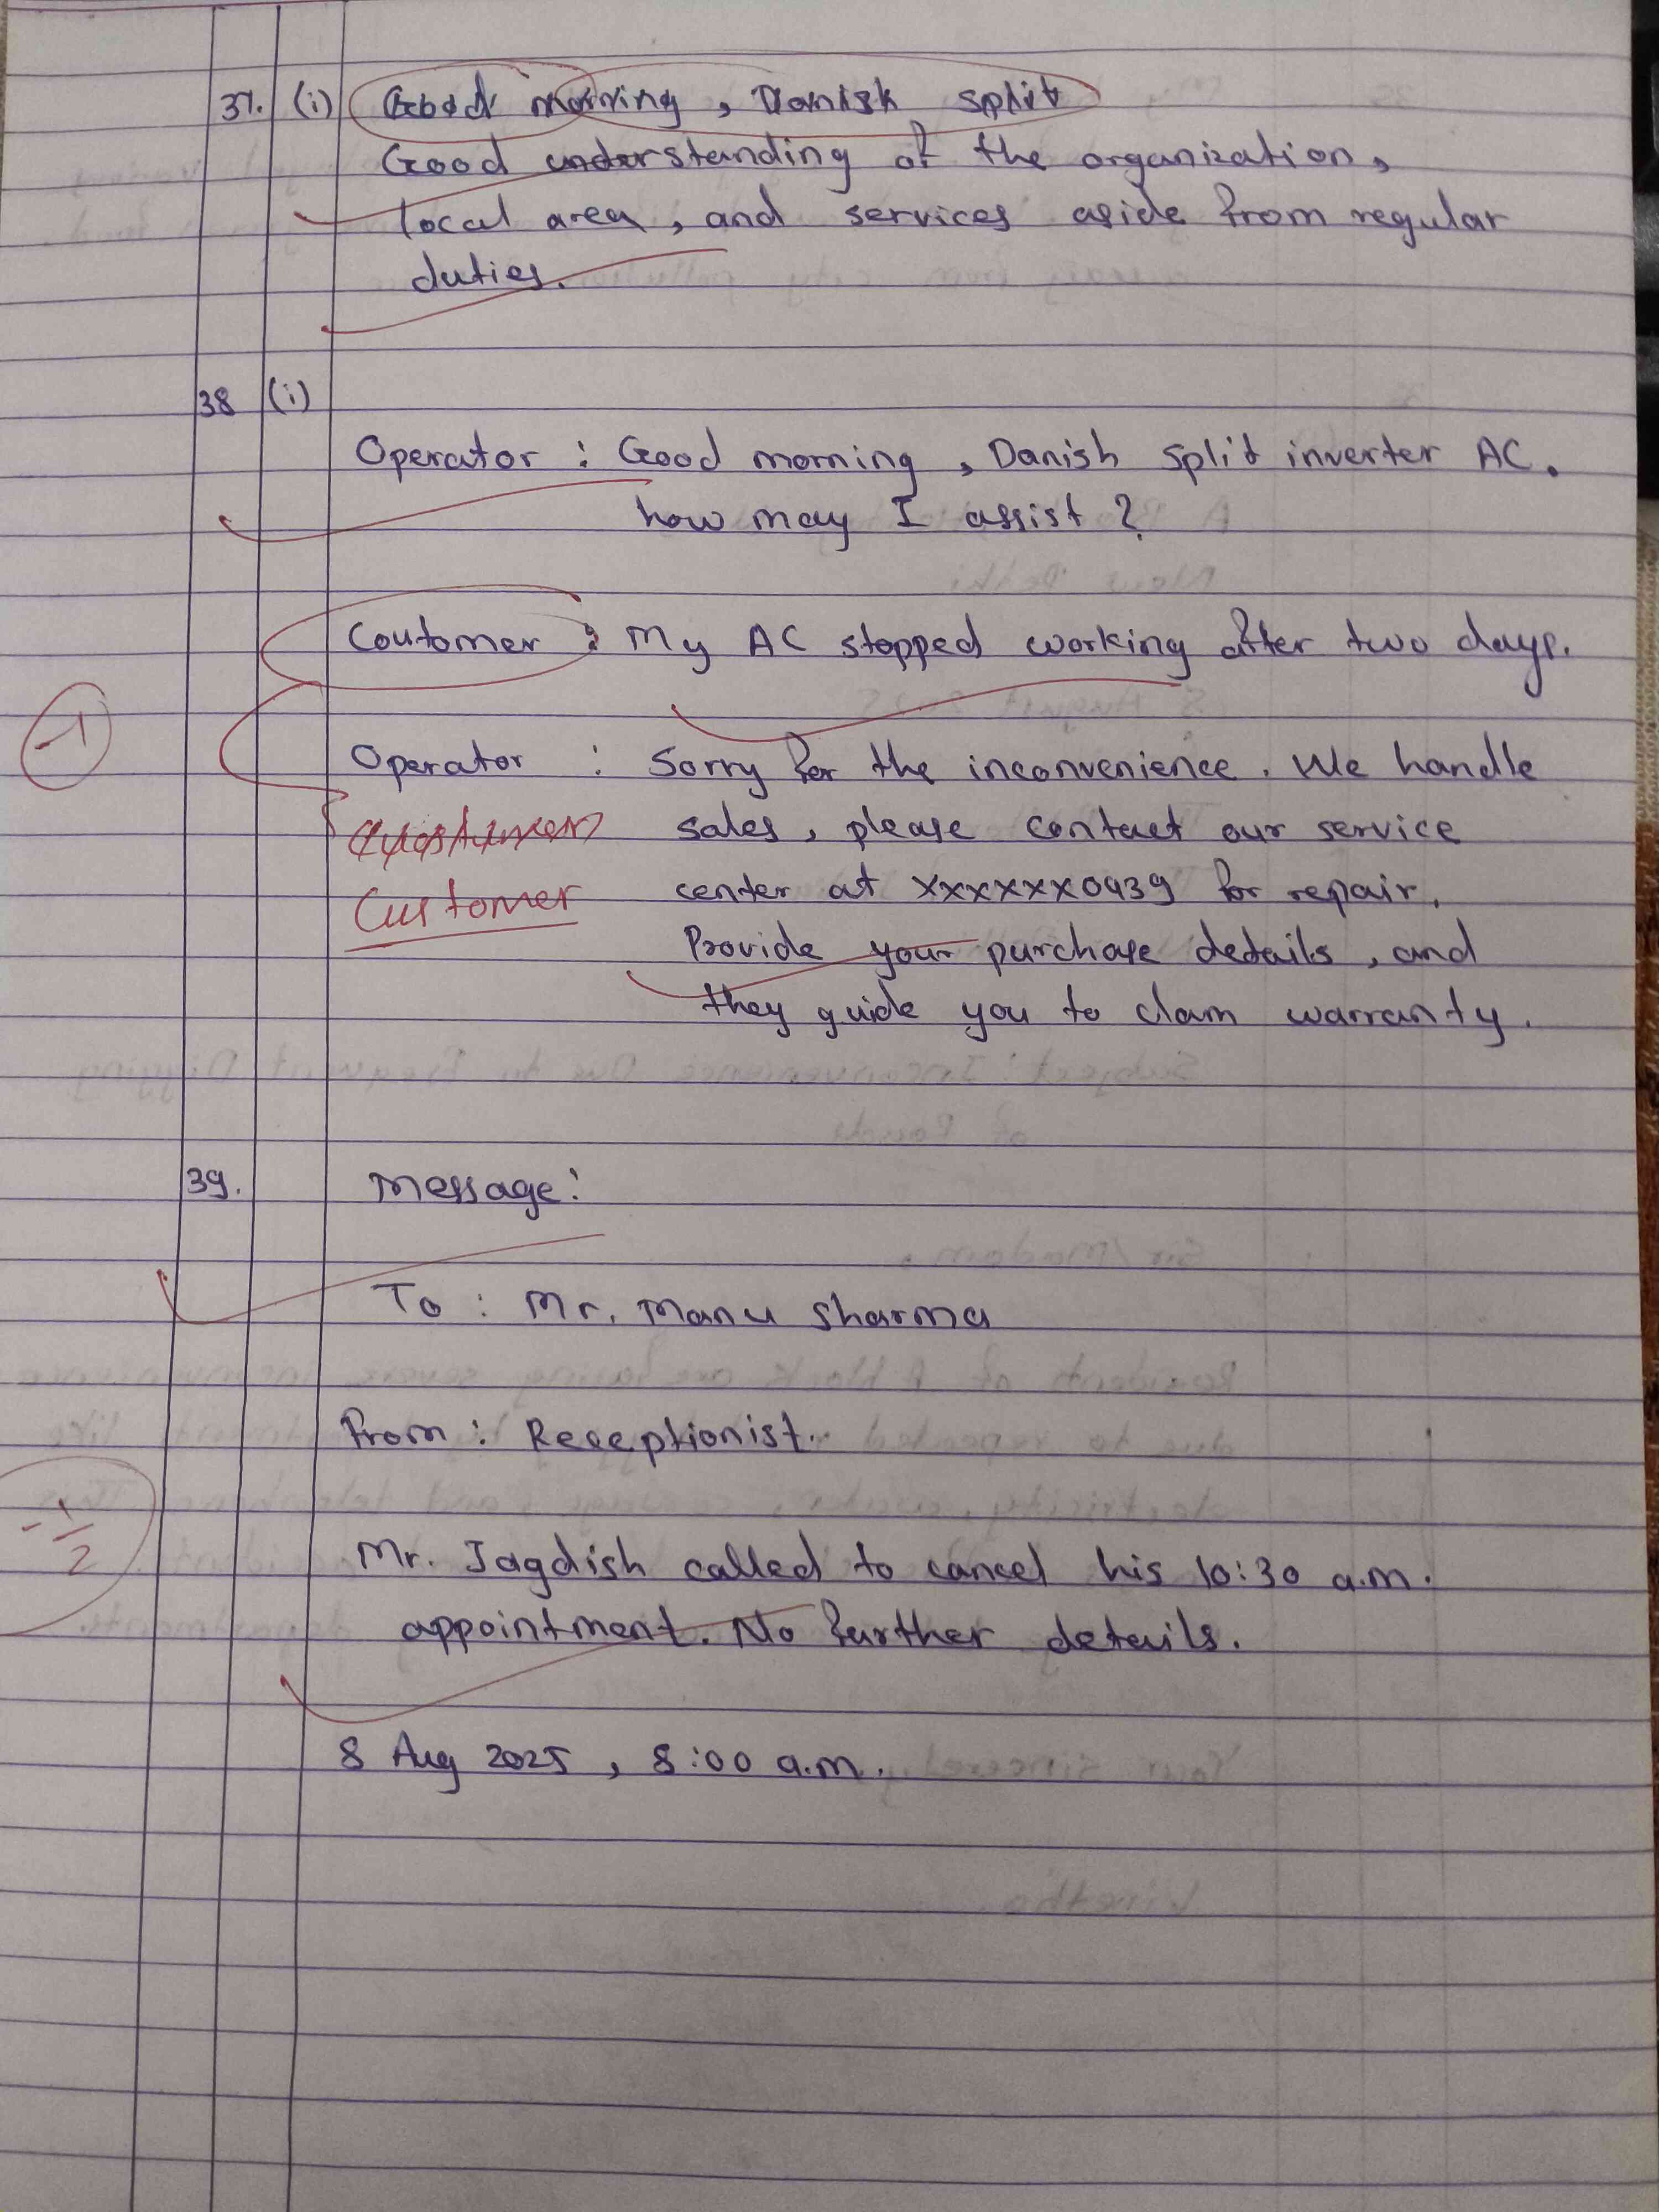 37. (i) Good morning, Danish split
Good understanding of the organization,
local area, and services aside from regular
duties.
38 (i)
Operator : Good morning, Danish split inverter AC.
how may I assist ?
Coutomer : My AC stopped working after two days.
-1
Operator : Sorry for the inconvenience. We handle
sales, please contact our service
Customer
center at xxxxxxx0939 for repair.
Provide your purchase details, and
they guide you to clam warranty.
39. Message:
To : Mr. Manu Sharma
From : Receptionist.
-1/2
Mr. Jagdish called to cancel his 10:30 a.m.
appointment. No further details.
8 Aug 2025, 8:00 a.m.